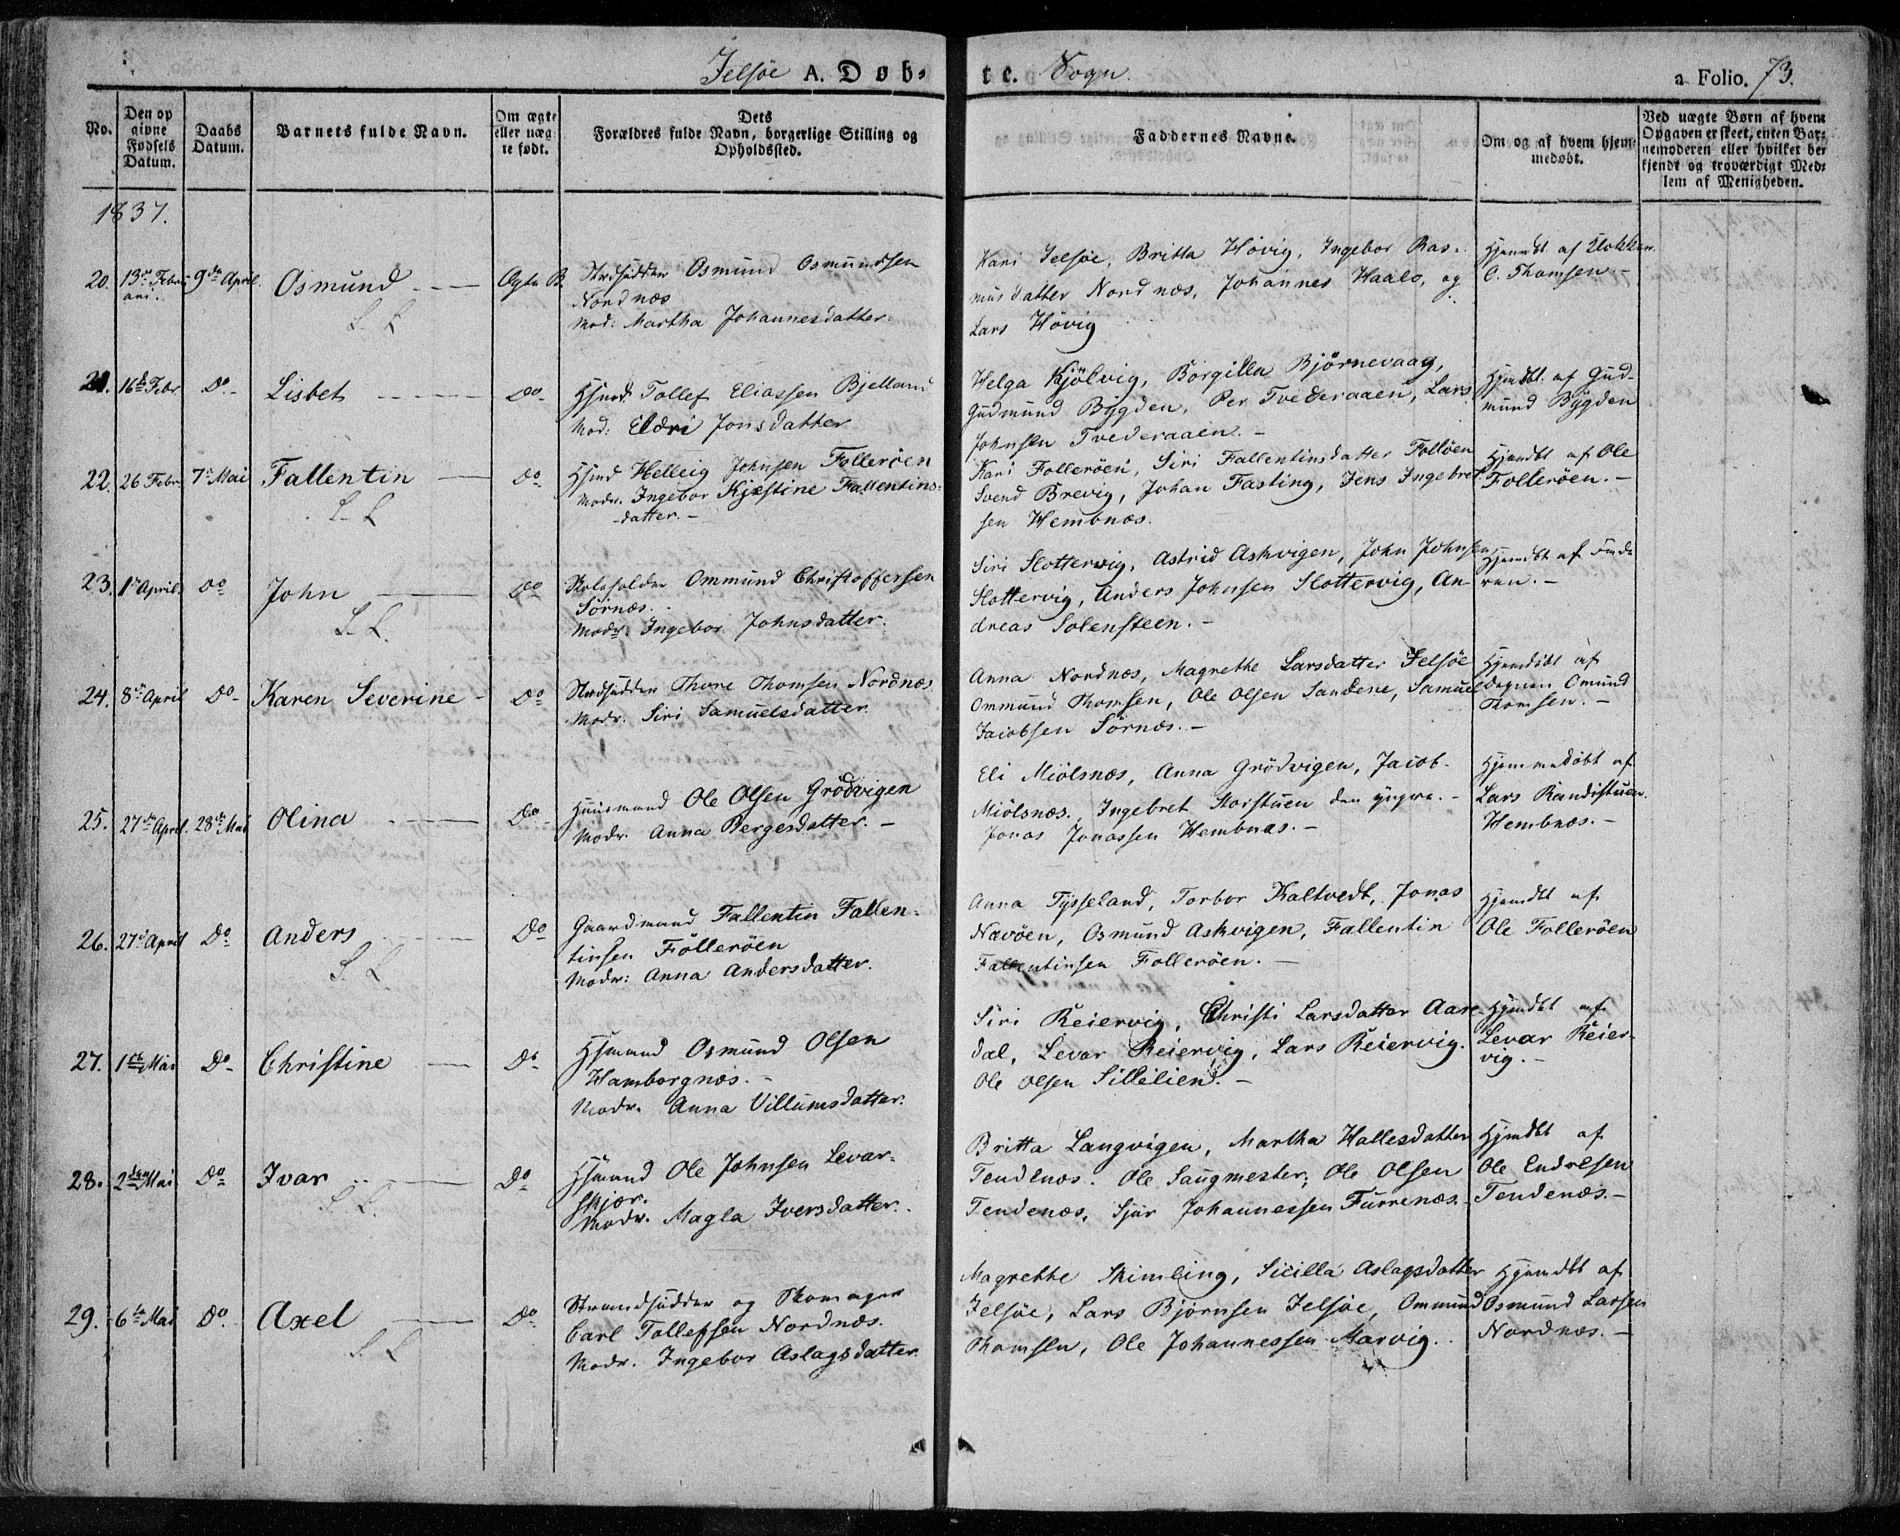 Jelsøe A. Døb- te. Sogn. a Folio. 73.
No.
Den op
givne
Fødsels
Datum.
Daabs
Datum.
Barnets fulde Navn.
Om ægte
eller uæg-
te født.
Dets
Forældres fulde Navn, borgerlige Stilling og
Opholdssted.
Faddernes Navne.
Om og af hvem hjem-
medøbt.
Ved uægte Børn af hvem
Opgaven er skeet, enten Bar-
nemoderen eller hvilket be-
kjendt og troværdigt Med-
lem af Menigheden.
1837.
20. 13de Febru
ari. 9de April. Osmund Ægte B.
S. L
Strdsidder Osmund Osmundsen
Nordnæs
Mod: Martha Johannesdatter.
Kari Jelsøe, Britta Høvig, Ingebor Ras-
musdatter Nordnæs, Johannes Haalo, og
Lars Høvig
Hjemdbt af Klokker
C. Thomsen -
21. 16de Febr. Do- Lisbet Do-
Hsmd: Tollef Eliassen Bjelland
Mod: Eldri Jonsdatter
Helga Kjölvig, Borgilla Björnevaag,
Gudmund Bygden, Per Tvederaaen, Lars
Johnsen Tvederaaen. -
Hjemdbt. af Gud-
mund Bygden
22. 26 Febr. 7de Mai Fallentin Do-
S. L
Hsmd Helleig Johnsen Follerøen
Modr. Ingebor Kjestine Fallentins-
datter. -
Kari Follerøen, Siri Fallentinsdatter Folløen
Svend Brevig, Johan Fasting, Jens Ingebret
sen Hembnæs.
Hjemdbt af Ole
Follerøen. -
23. 1de April Do John Do
S. L.
Skoleholder Ommund Christoffersen
Sørnæs.
Modr. Ingebor Johnsdatter.
Siri Slottervig, Astrid Askvigen, John Johnsen
Slottervig, Anders Johnsen Slottervig, An-
dreas Solensteen. -
Hjemdbt af Fade
ren. -
24. 8de April Do- Karen Severine - Do
Strdsidder Thore Thomsen Nordnæs
Modr. Siri Samuelsdatter
Anna Nordnæs, Magrethe Larsdatter Jelsøe
Ommund Thomsen, Ole Olsen Sandene, Samuel
Jacobsen Sørnæs. -
Hjemdöbt af
Degnen Omund
Thomsen. -
25. 27de April. 28de Mai Olina Do
Huusmand Ole Olsen Grødvigen
Modr. Anna Bergesdatter. -
Eli Miölsnæs, Anna Grödvigen, Jacob
Miölsnæs, Ingebret Storstuen den yngre. -
Jonas Jonassen Hembnæs. -
Hjemmedøbt af
Lars Randistuen
Hembnæs. -
26. 27de April Do Anders Do
S. L
Gaardmand Fallentin Fallen-
tinsen Follerøen
Modr: Anna Andersdatter.
Anna Tysseland, Torbor Kaltvedt, Jonas
Navøen, Osmund Askvigen, Fallentin
Fallentinsen Follerøen. -
Hjemdbt af
Ole Follerøen
27. 1de Mai Do- Christine Do
Hsmand Osmund Olsen
Hamborgnæs. -
Modr. Anna Villumsdatter.
Siri Reiervig, Christi Larsdatter Aare-
dal, Levar Reiervig, Lars Reiervig.
Ole Olsen Sillelien. -
Hjemdbt af
Levar Reier-
vig. -
28. 2den Mai Do Ivar Do
S. L.
Hsmand Ole Johnsen Levar-
skjær.
Modr. Magla Iversdatter.
Britta Langvigen, Martha Hallesdatter
Tendenæs. Ole Saugmester; Ole Olsen
Tendenæs, Sjur Johannessen Furrenæs. -
Hjemdbt af
Ole Endresen
Tendenæs. -
29. 6te Mai Do. Axel Do
S. L
Strandsidder og Skomager
Carl Tollefsen Nordnæs.
Modr. Ingebor Aslagsdatter
Magrethe Skimling, Sicilla Aslagsdatter
Jelsøe, Lars Bjørnsen Jelsøe, Ommund
Thomsen, Ole Johannessen Marvig.
Hjemdbt af
Osmund Larsen
Nordnæs. -